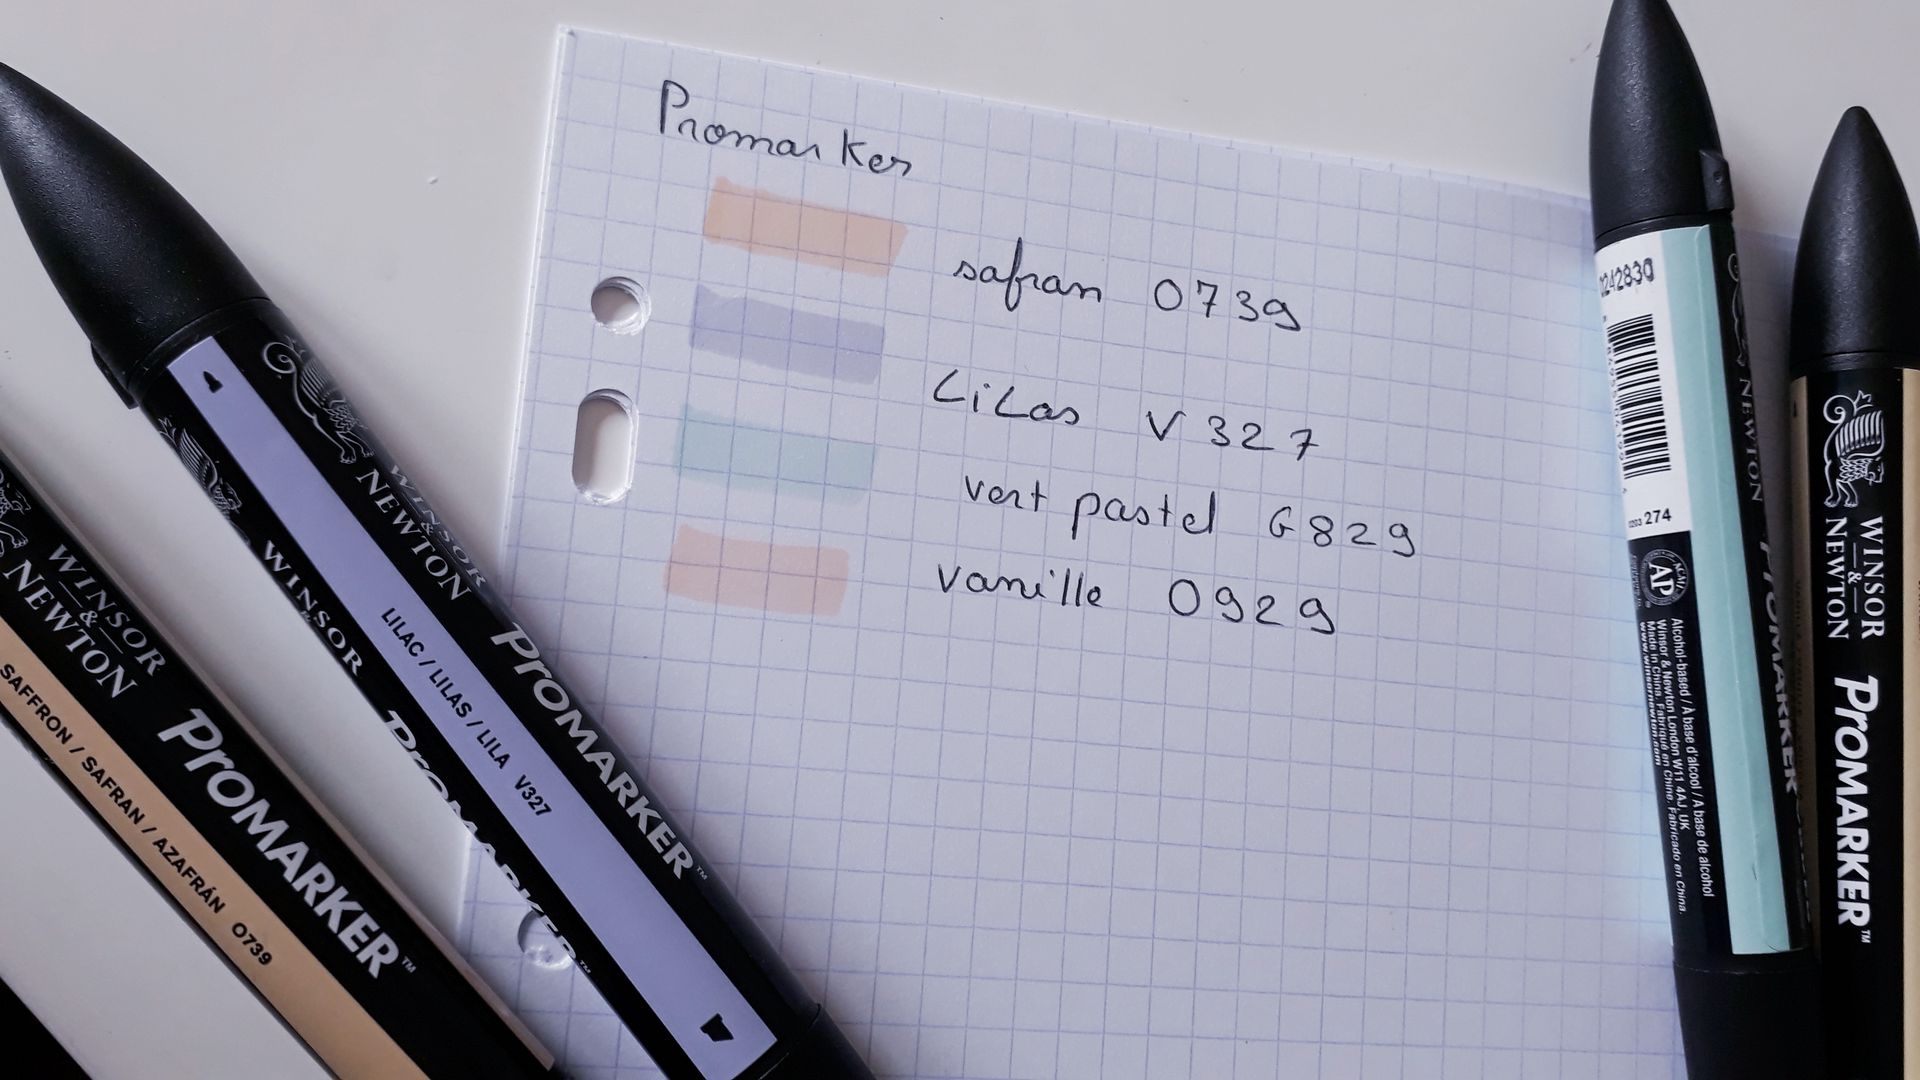 Promarker
safran 0739
Lilas V327
vert pastel G829
vanille 0929
WINSOR
&
NEWTON
PROMARKER™
SAFFRON / SAFRAN / AZAFRÁN O739
WINSOR
&
NEWTON
PROMARKER™
LILAC / LILAS / LILA V327
WINSOR
PROMARKER™
274
AP
Alcohol-based / A base d'alcool / A base de alcohol
Winsor & Newton London W11 4AJ, UK
Made in China. Fabriqué en Chine. Fabricado en China.
www.winsornewton.com
NEWTON
PROMARKER
WINSOR
&
NEWTON
PROMARKER™